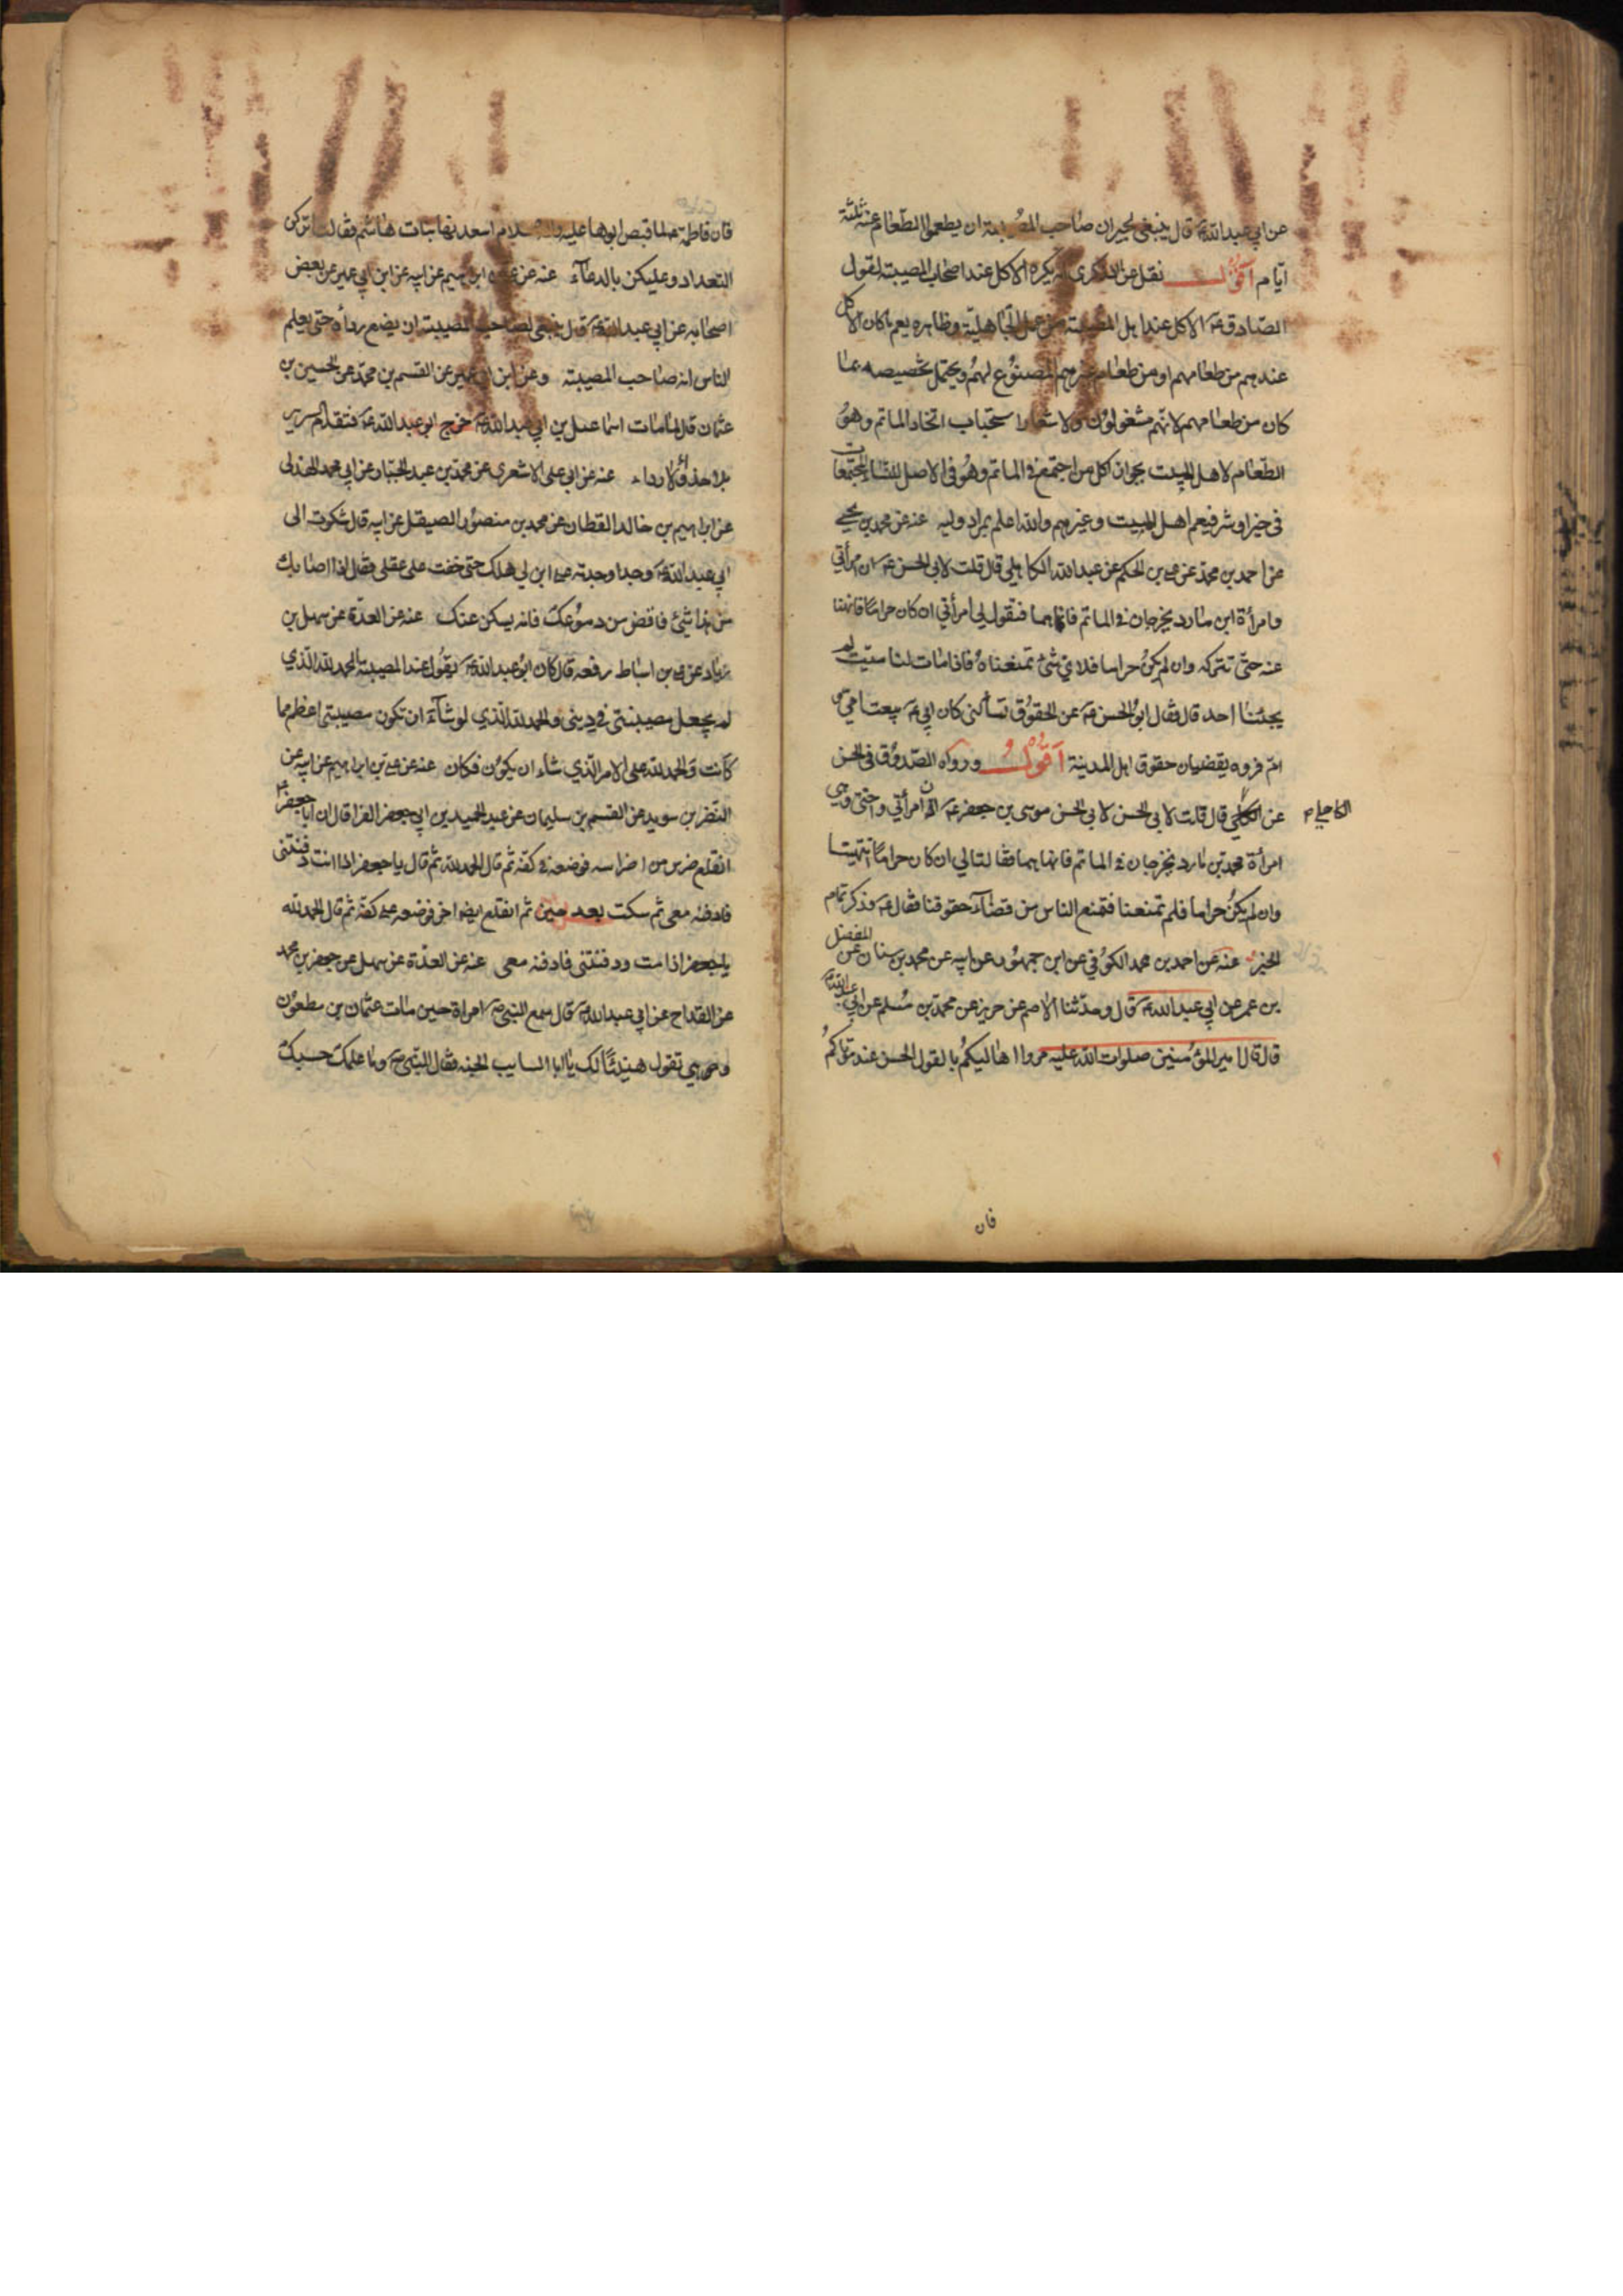 عن ابي عبد الله ع قال ينبغي لجيران صاحب المصيبة ان يطعموا الطعام عنه ثلثة
ايام اقول نقل عن الذكرى انه يكره الاكل عند اصحاب المصيبة لقول
الصادق ع الاكل عند اهل المصيبة من عمل الجاهلية وظاهره يعم ما كان الاكل
عندهم من طعامهم او من طعام غيرهم المصنوع لهم ويحتمل تخصيصه بما
كان من طعامهم لانهم مشغولون ولاشعار استحباب اتخاذ الماتم وهو
الطعام لاهل البيت بجواز اكل من اجتمع في الماتم وهو في الاصل للنساء المجتمعات
في خير او شر فيعم اهل البيت وغيرهم والله اعلم بمراد وليه عنه عن محمد بن يحيى
عن احمد بن محمد عن علي بن الحكم عن عبد الله الكاهلي قال قلت لابي الحسن ع ان امرأتي
وامرأة ابن مارد يخرجان في الماتم فانهاهما فتقول لي امرأتي ان كان حراما فانهنا
عنه حتى نتركه وان لم يكن حراما فلاي شئ تمنعناه فاذا مات لنا ميت لم
يجئنا احد قال فقال ابو الحسن ع عن الحقوق تسألني كان ابي ع يبعث امي و
ام فروه يقضيان حقوق اهل المدينة اقول ورواه الصدوق في الحسن
عن الكاهلي قال قلت لابي الحسن لابي الحسن موسى بن جعفر ع ان امرأتي واختي وهي
الكاهلي م
امرأة محمد بن مارد تخرجان في الماتم فانهاهما فقالتا لي ان كان حراما انتهينا
وان لم يكن حراما فلم تمنعنا فتمنع الناس من قضاء حقوقنا فقال ع وذكر تمام
الخبر عنه عن احمد بن محمد الكوفي عن ابن جمهور عن ابيه عن محمد بن سنان عن المفضل
بن عمر عن ابي عبد الله ع قال وحدثنا الاصم عن حريز عن محمد بن مسلم عن ابي عبد الله ع
قال قال امير المؤمنين صلوات الله عليه مروا اهاليكم بالقول الحسن عند موتاكم
فان
فان فاطمة ع لما قبض ابوها عليه والسلام اسعدتها بنات هاشم فقالت اتركن
التعداد وعليكن بالدعاء عنه عن علي بن ابرهيم عن ابيه عن ابن ابي عمير عن بعض
اصحابه عن ابي عبد الله ع قال ينبغي لصاحب المصيبة ان يضع رداه حتى يعلم
الناس انه صاحب المصيبة وعن ابن ابي عمير عن القسم بن محمد عن الحسين بن
عثمان قال لما مات اسماعيل بن ابي عبد الله ع خرج ابو عبد الله ع فتقدم السرير
بلا حذاء ولا رداء عنه عن ابي علي الاشعري عن محمد بن عبد الجبار عن ابي محمد الهذلي
عن ابراهيم بن خالد القطان عن محمد بن منصور الصيقل عن ابيه قال شكوت الى
ابي عبد الله ع وجدا وجدته على ابن لي هلك حتى خفت على عقلي فقال اذا اصابك
من هذا شئ فافض من دموعك فانه يسكن عنك عنه عن العدة عن سهل بن
زياد عن علي بن اسباط رفعه قال كان ابو عبد الله ع يقول عند المصيبة الحمد لله الذي
لم يجعل مصيبتي في ديني والحمد لله الذي لو شاء ان تكون مصيبتي اعظم مما
كانت والحمد لله على الامر الذي شاء ان يكون فكان عنه عن علي بن ابراهيم عن ابيه عن
النضر بن سويد عن القسم بن سليمان عن عبد الحميد بن ابي جعفر الفرا قال ان ابا جعفر ع
انقلع ضرس من اضراسه فوضعه في كفه ثم قال الحمد لله ثم قال يا جعفر اذا انت دفنتني
فادفنه معي ثم سكت بعد حين ثم انقلع ايضا اخر فوضعه على كفه ثم قال الحمد لله
يا جعفر اذا مت ودفنتني فادفنه معي عنه عن العدة عن سهل عن جعفر بن محمد
عن القداح عن ابي عبد الله ع قال سمع النبي ص امراة حين مات عثمان بن مظعون
وهي تقول هنيئا لك يا ابا السايب الجنه فقال النبي ص وما علمك حسبك